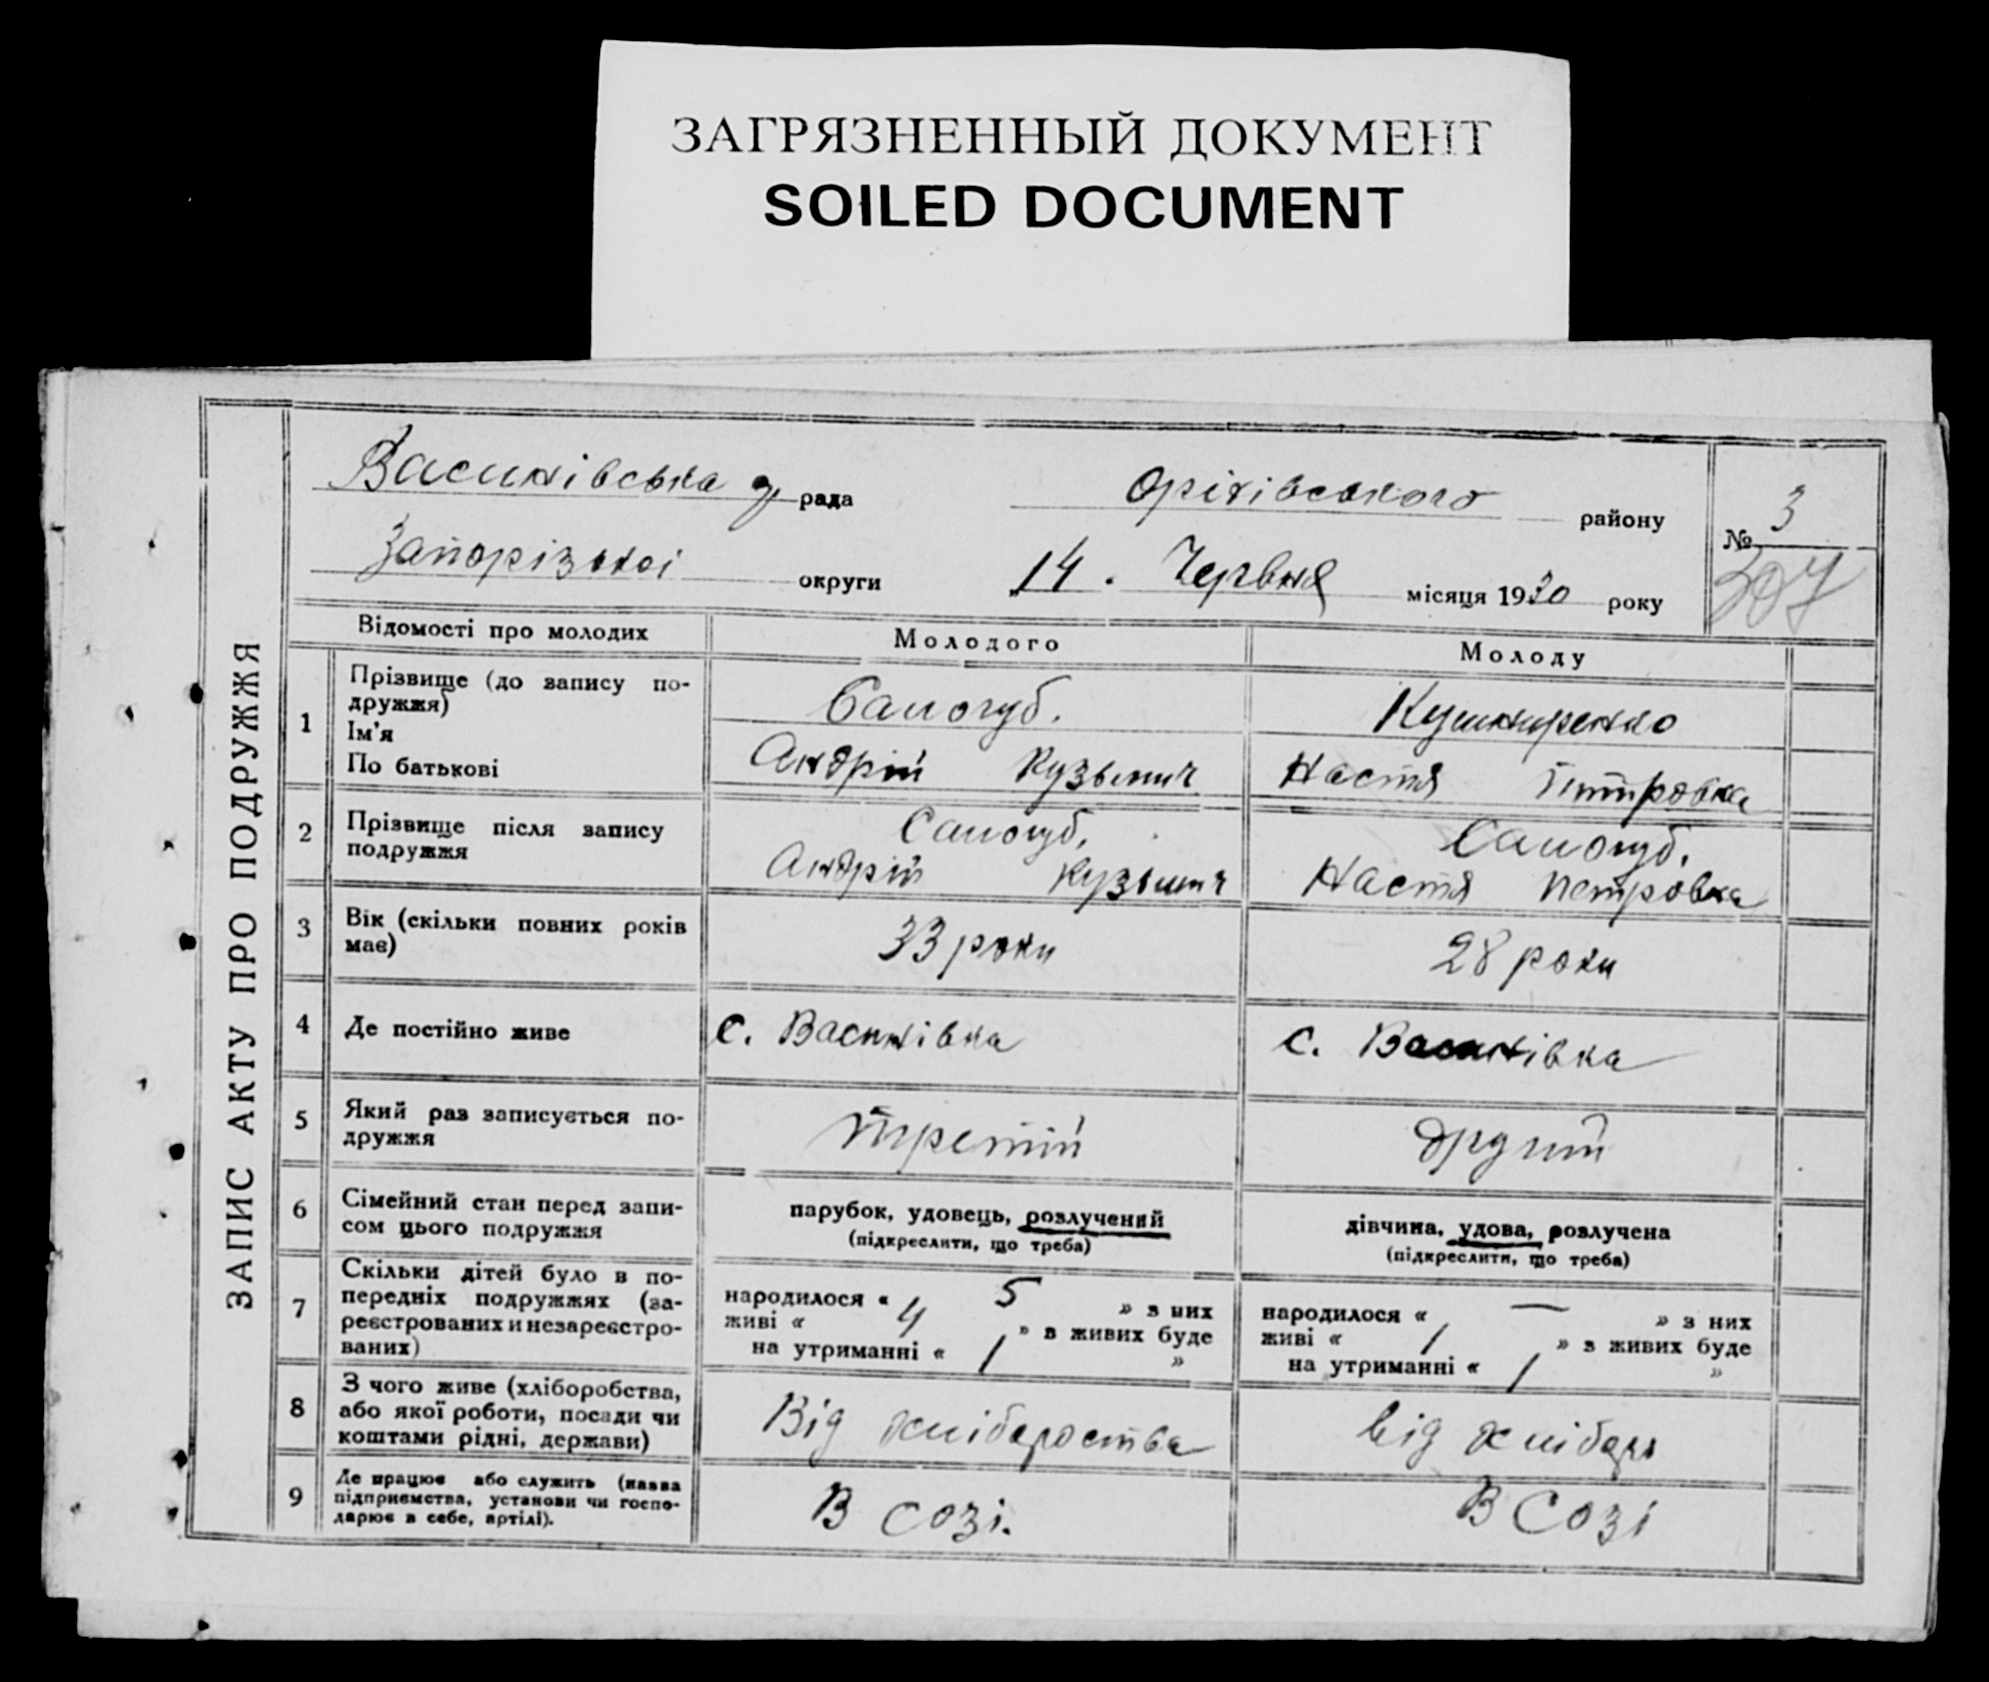 ЗАГРЯЗНЕННЫЙ ДОКУМЕНТ
SOILED DOCUMENT
ЗАПИС АКТУ ПРО ПОДРУЖЖЯ
Василівська рада Оріхівського району № 3
Запорізької округи „14. Червня місяця 1930 року 307
Відомості про молодих Молодого Молоду
1 Прізвище (до запису по-
дружжя)
Ім'я
По батькові
Самогуб. Кушниренко
Андрій Кузьмич Настя Петровна
2 Прізвище після запису
подружжя
Самогуб. Самогуб.
Андрій Кузьмич Настя Петровна
3 Вік (скільки повних років
має)
33 роки 28 роки
4 Де постійно живе с. Василівка с. Василівка
5 Який раз записується по-
дружжя
третій другий
6 Сімейний стан перед запи-
сом цього подружжя
парубок, удовець, розлучений дівчина, удова, розлучена
(підкреслити, що треба) (підкреслити, що треба)
7 Скільки дітей було в по-
передніх подружжях (за-
реєстрованих и незареєстро-
ваних)
народилося « 5 » з них народилося « — » з них
живі « 4 » з живих буде живі « / » з живих буде
на утриманні « / » на утриманні « / »
8 З чого живе (хліборобства,
або якої роботи, посади чи
коштами рідні, держави)
Від хліборобства від хлібор
9 Де працює або служить (назва
підприємства, установи чи госпо-
дарює в себе, артілі).
В Созі. В Созі